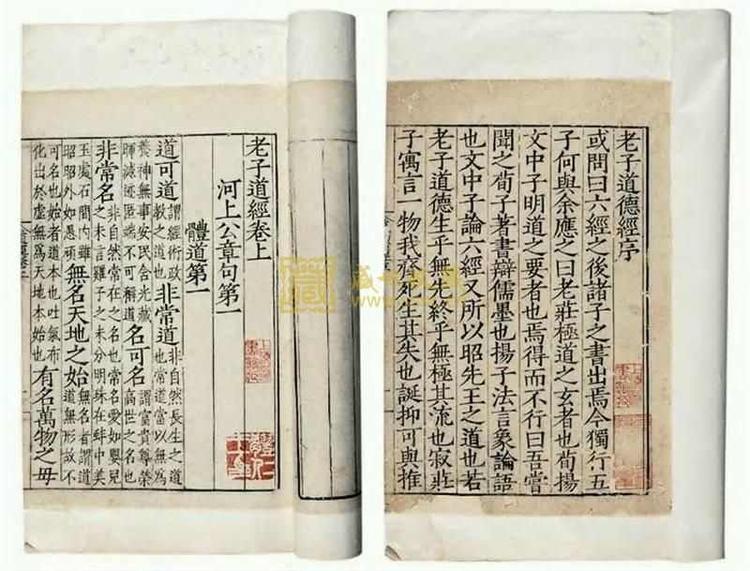 老子道德經序
或問曰六經之後諸子之書出焉今獨行五
子何與余應之曰老莊極道之玄者也荀揚
文中子明道之要者也焉得而不行曰吾嘗
聞之荀子著書辯儒墨也揚子法言象論語
也文中子論六經又所以昭先王之道也若
老子道德生乎無先終乎無極其流也寂莊
子寓言一物我齊死生其失也誕抑可與推
老子道經卷上
河上公章句第一
體道第一
道可道謂經術政教之道也非常道非自然長生之道也常道當以無為
養神無事安民含光藏暉滅迹匿端不可稱道名可名謂富貴尊榮高世之名也
非常名非自然常在之名也常名愛如嬰兒之未言雞子之未分明珠在蚌中美
玉處石間內雖昭昭外如愚頑無名天地之始無名者謂道道無形故不
可名也始者道本也吐氣布化出於虛無為天地本始也有名萬物之母